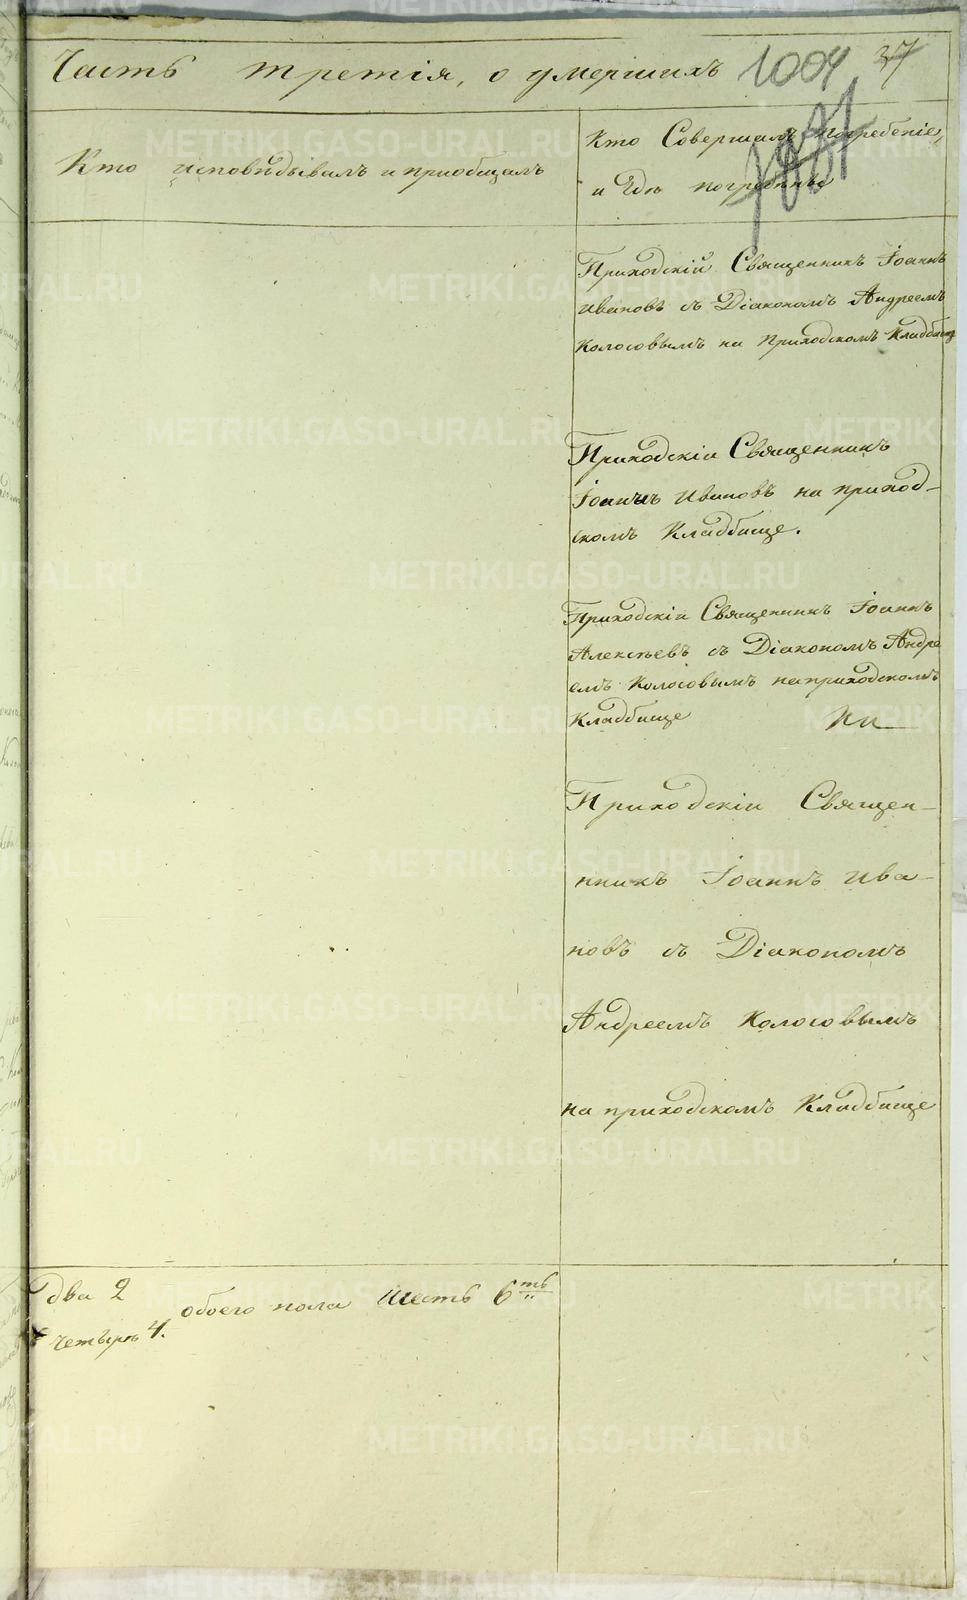 Часть третія, о умершихъ 1004 37
Кто исповѣдывалъ и приобщалъ
Кто Совершалъ погребеніе,
и Гдѣ погребены
Приходскій Священникъ Іоаннъ
Ивановъ съ Діакономъ Андреемъ
Колосовымъ на Приходскомъ Кладбище
Приходскій Священникъ
Іоаннъ Ивановъ на приход-
скомъ Кладбище.
Приходскій Священникъ Іоаннъ
Алексѣевъ съ Діакономъ Андре
емъ Колосовымъ на приходскомъ
Кладбище
Приходскій Священ-
никъ Іоаннъ Ива-
новъ съ Діакономъ
Андреемъ Колосовымъ
на приходскомъ Кладбище
два 2
обоего пола шесть 6ть
четыре 4.
METRIKI.GASO-URAL.RU